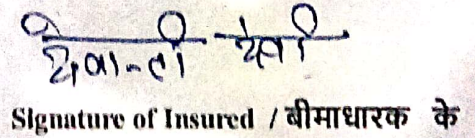 देवान्ती देवी
Signature of Insured / बीमाधारक के